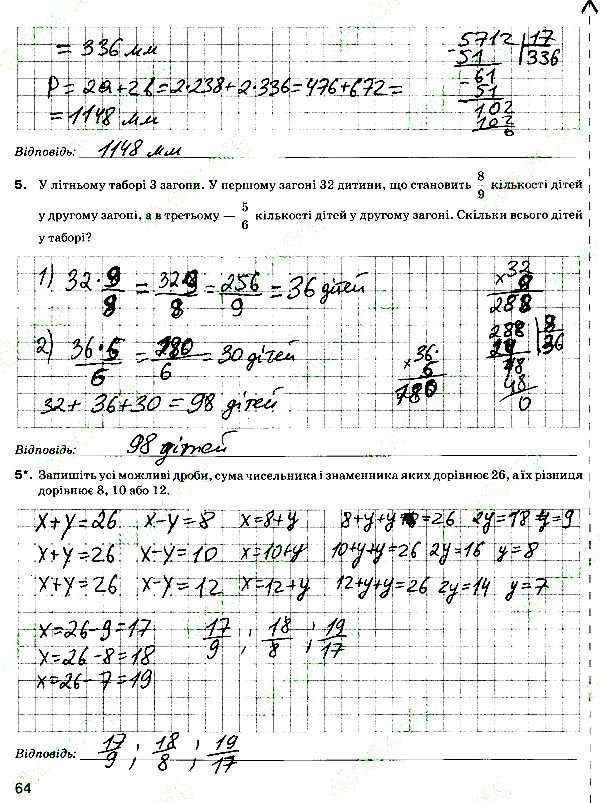 = 336 мм
P = 2a + 2b = 2·238 + 2·336 = 476 + 672 =
= 1148 мм
5712 | 17
51 336
61
51
102
102
0
Відповідь: 1148 мм
5. У літньому таборі 3 загони. У першому загоні 32 дитини, що становить 8/9 кількості дітей
у другому загоні, а в третьому — 5/6 кількості дітей у другому загоні. Скільки всього дітей
у таборі?
1) 32·9/8 = 32·9/8 = 256/9 = 36 дітей
32
× 9
288
288 | 8
24 36
48
48
0
2) 36·5/6 = 180/6 = 30 дітей
36
×
180
32 + 36 + 30 = 98 дітей.
Відповідь: 98 дітей
5*. Запишіть усі можливі дроби, сума чисельника і знаменника яких дорівнює 26, а їх різниця
дорівнює 8, 10 або 12.
x+y=26 x-y=8 x=8+y 8+y+y=26 2y=18 y=9
x+y=26 x-y=10 x=10+y 10+y+y=26 2y=16 y=8
x+y=26 x-y=12 x=12+y 12+y+y=26 2y=14 y=7
x=26-9=17 17/9 ; 18/8 ; 19/17
x=26-8=18
x=26-7=19
Відповідь: 17/9 ; 18/8 ; 19/17
64